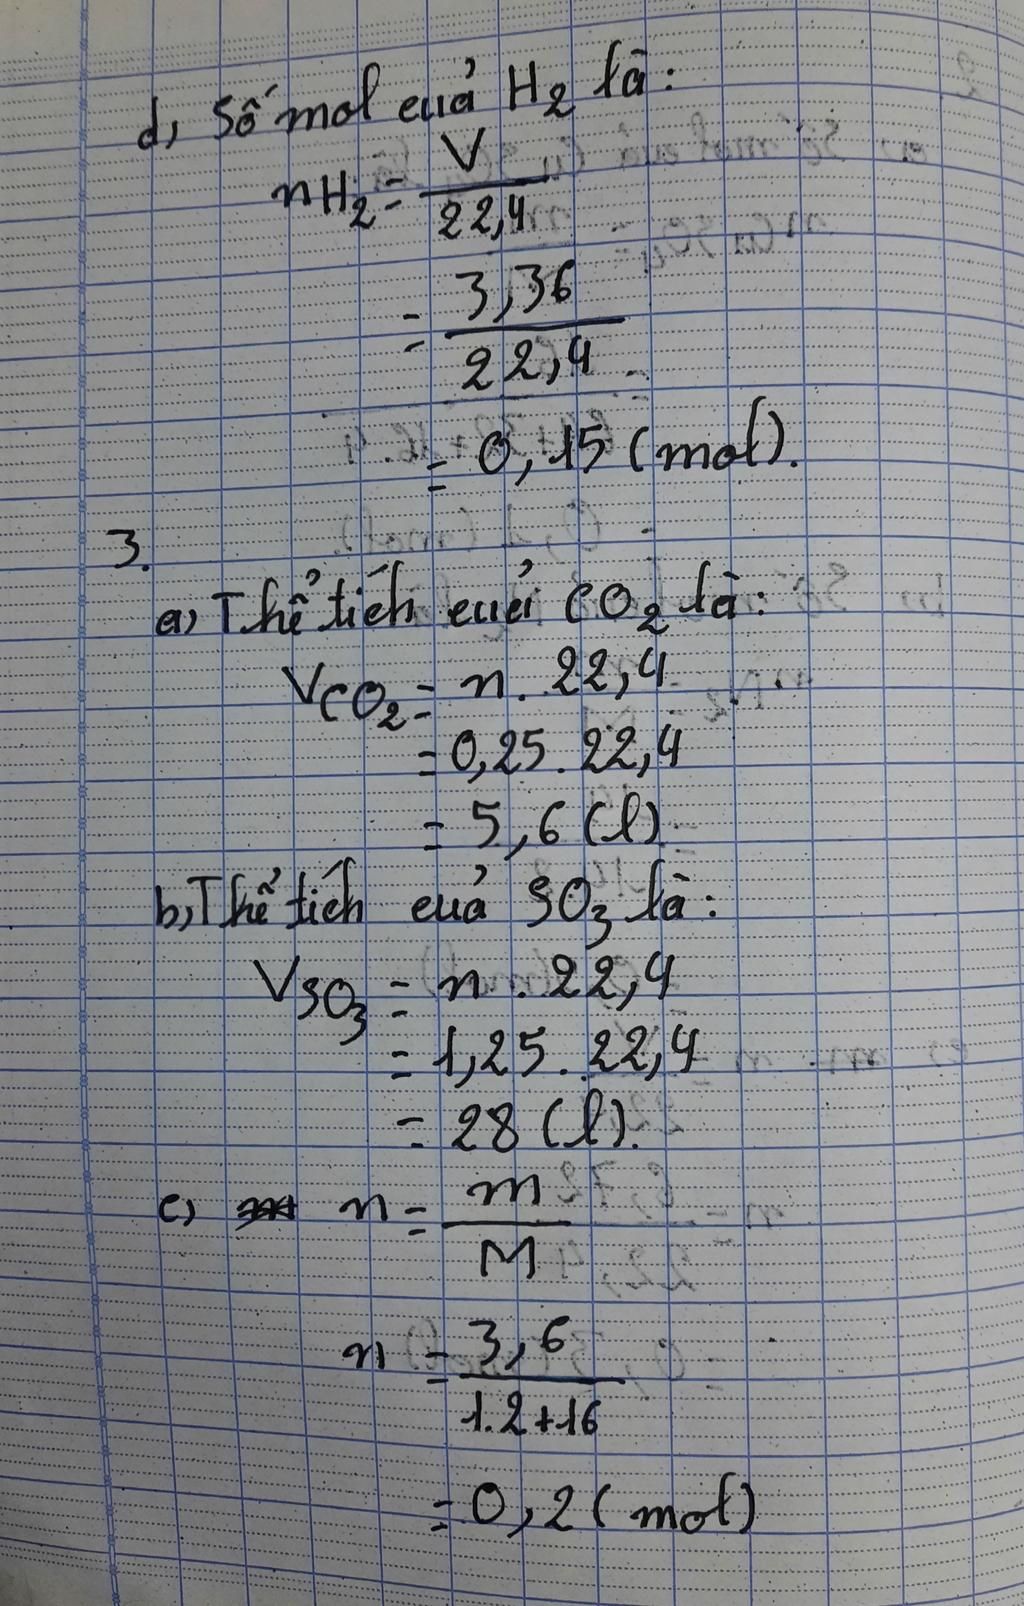 d, Số mol của H2 là:
nH2 = V / 22,4
= 3,36 / 22,4
= 0,15 (mol).
3.
a, Thể tích của CO2 là:
VCO2 = n. 22,4
= 0,25. 22,4
= 5,6 (l)
b, Thể tích của SO3 là:
VSO3 = n. 22,4
= 1,25. 22,4
= 28 (l).
c, n = m / M
n = 3,6 / 1.2+16
= 0,2 (mol)